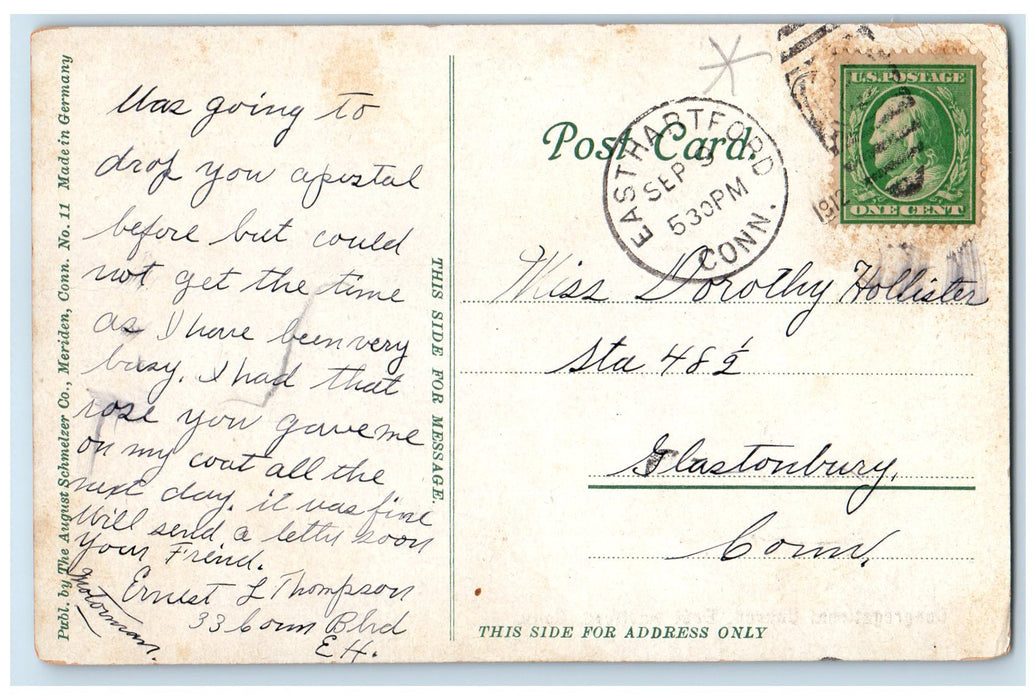 Publ. by The August Schmelzer Co., Meriden, Conn. No. 11 Made in Germany
Was going to
drop you apostal
before but could
not get the time
as I have been very
busy. I had that
rose you gave me
on my coat all the
next day. it was fine
Will send a letter soon
Your Friend.
Ernest L Thompson
33 Conn Blvd
E H.
Motorman.
THIS SIDE FOR MESSAGE.
Post Card.
EAST HARTFORD
SEP
530 PM
CONN.
1912
U.S. POSTAGE
ONE CENT
Miss Dorothy Hollister
Sta 48 ½
Glastonbury,
Conn.
THIS SIDE FOR ADDRESS ONLY